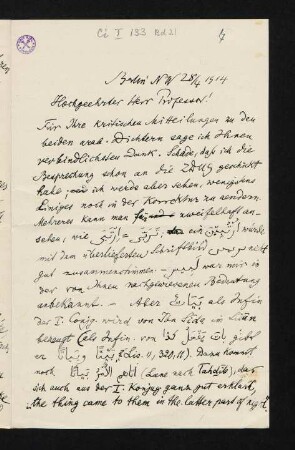 Cé I 133 Bd 21
Berlin NW 28/4 1914
Hochgeehrter Herr Professor!
Für Ihre kritischen Mitteilungen zu den
beiden arab. Dichtern sage ich Ihnen
verbindlichsten Dank. Schade, daß ich die
Besprechung schon an die ZDMG geschickt
habe; ich werde aber sehen, wenigstens
Einiges noch in der Korrektur zu aendern.
Mehreres kann man zweifelhaft an-
sehen, wie
ein würde
mit dem überlieferten Schriftbild nicht
gut zusammenstimmen. – war mir in
der von Ihnen nachgewiesenen Bedeutung
unbekannt. – Aber بَيَات als Infin
der I. Conj. wird von Ibn Sida im Lisān
bezeugt (als Infin. von بات يفعل كذا gibt
er بَيْتًا وبَيَاتًا
Dann kommt
noch أتاهم الأمر بياتًا (Lane nach Tahdīb), das
sich auch aus der I. Konjug ganz gut erklärt,
„the thing came to them in the latter part of night".